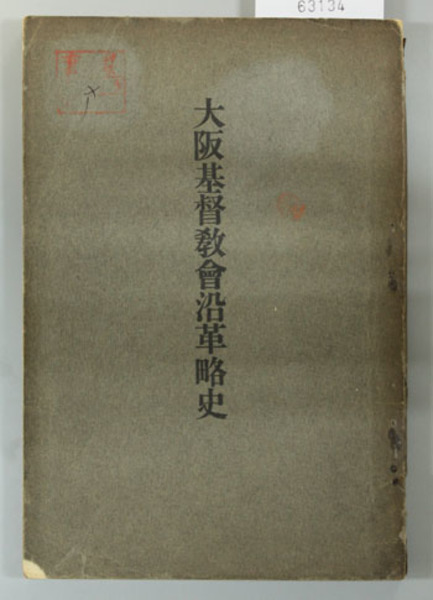 63134
大阪基督教會沿革略史